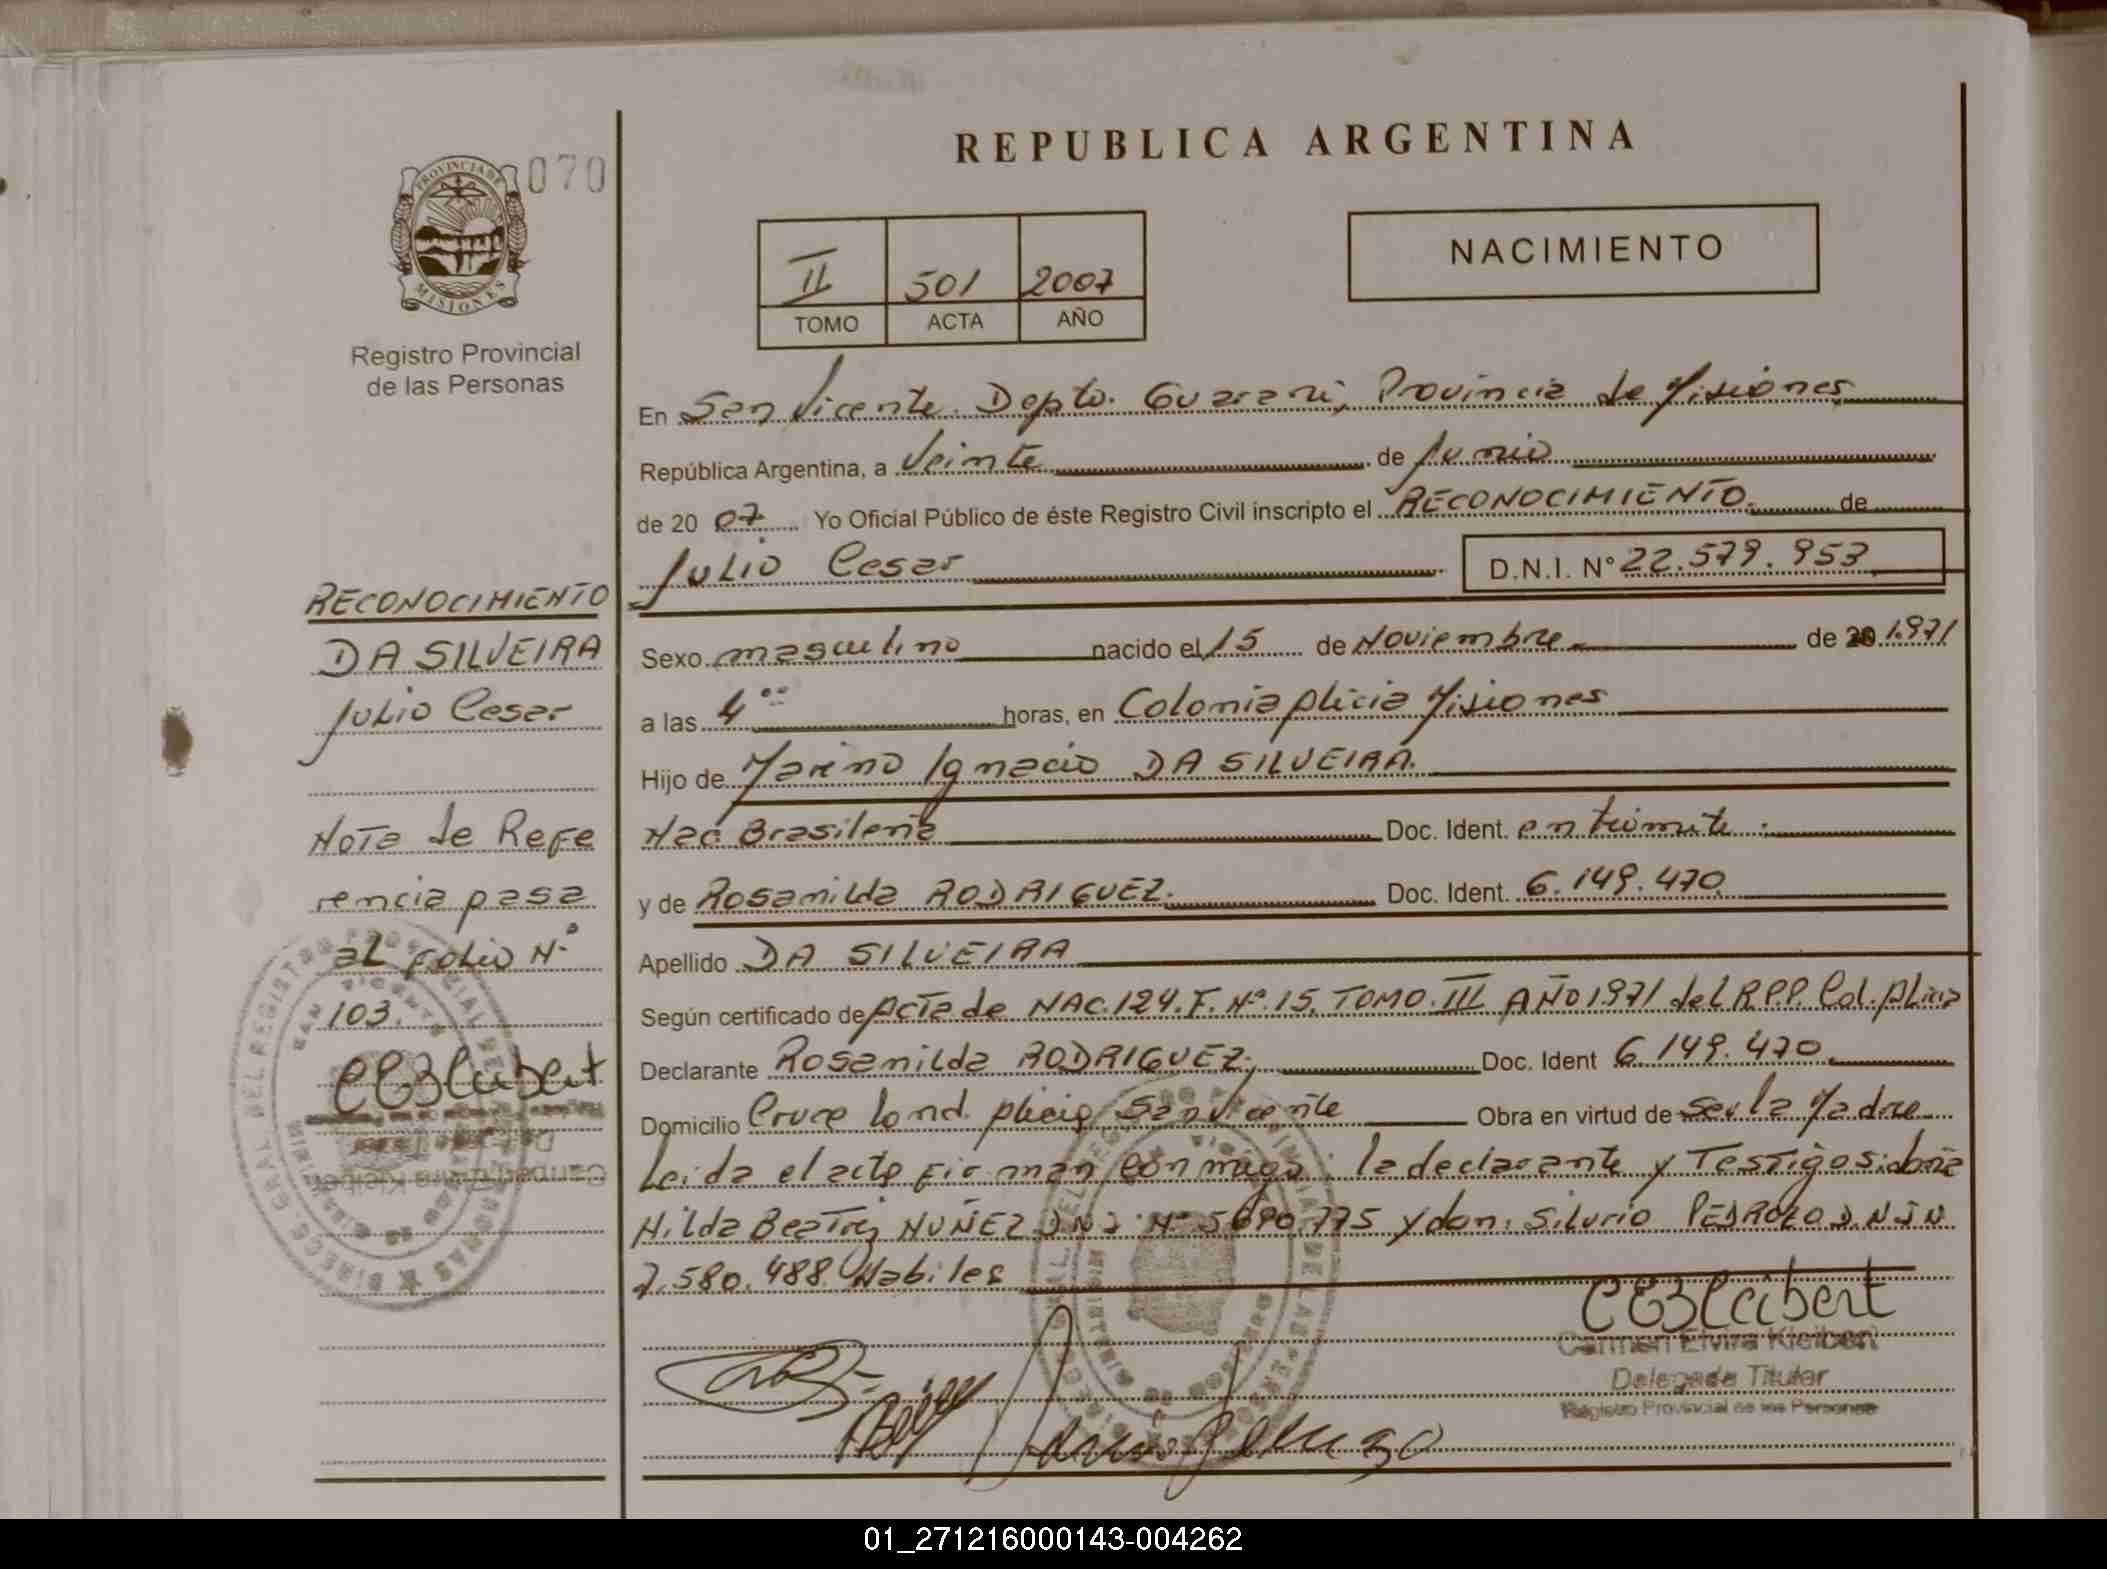 REPUBLICA ARGENTINA
070
PROVINCIA DE
MISIONES
Registro Provincial
de las Personas
II 501 2007
TOMO ACTA AÑO
NACIMIENTO
En San Vicente Depto. Guarani, Provincia de Misiones
República Argentina, a Veinte de Junio
de 20 07 Yo Oficial Público de éste Registro Civil inscripto el RECONOCIMIENTO de
Julio Cesar D.N.I. N° 22.579.953
Sexo masculino nacido el 15 de Noviembre de 20 1971
a las 4°° horas, en Colonia Alicia Misiones
Hijo de Marino Ignacio DA SILVEIRA
Nac. Brasileña Doc. Ident. en tramite
y de Rosanilda RODRIGUEZ Doc. Ident. 6.149.470
Apellido DA SILVEIRA
Según certificado de Acta de NAC. 124. F. N° 15. TOMO III AÑO 1971 del R.P.P. Col. Alicia
Declarante Rosanilda RODRIGUEZ Doc. Ident 6.149.470
Domicilio Cruce Lond. Alicia, San Vicente Obra en virtud de ser la Madre
Leida el acta firman conmigo: la declarante y Testigos: doña
Hilda Beatriz NUÑEZ D.N.I. N° 5690.775 y don: Silverio PEDROZO D.N.I N
7.580.488 Habiles
RECONOCIMIENTO
DA SILVEIRA
Julio Cesar
Nota de Refe
rencia pasa
al folio N°
103.
CEKleibert
CEKleibert
Carmen Elvira Kleibert
Delegada Titular
Registro Provincial de las Personas
01_271216000143-004262